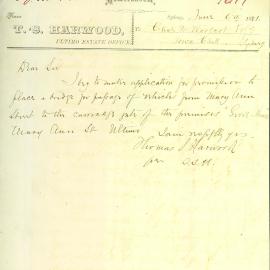 From
T. S. HARWOOD,
ULTIMO ESTATE OFFICE
Sydney, June 189
To
Town Clerk, Sydney
Dear Sir
I beg to make application for permission to
place a bridge for passage of vehicles from Mary Ann
Street to the carriage gate of the premises
Mary Ann St. Ultimo
I am respftly yrs.
Thomas S Harwood
per